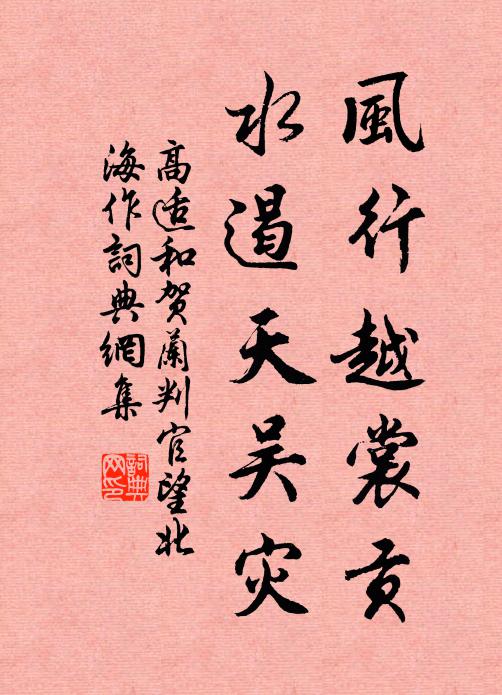 風行越裳貢
水遏天吴灾
高适和賀蘭判官望北
海作詞典網集
詞典網印